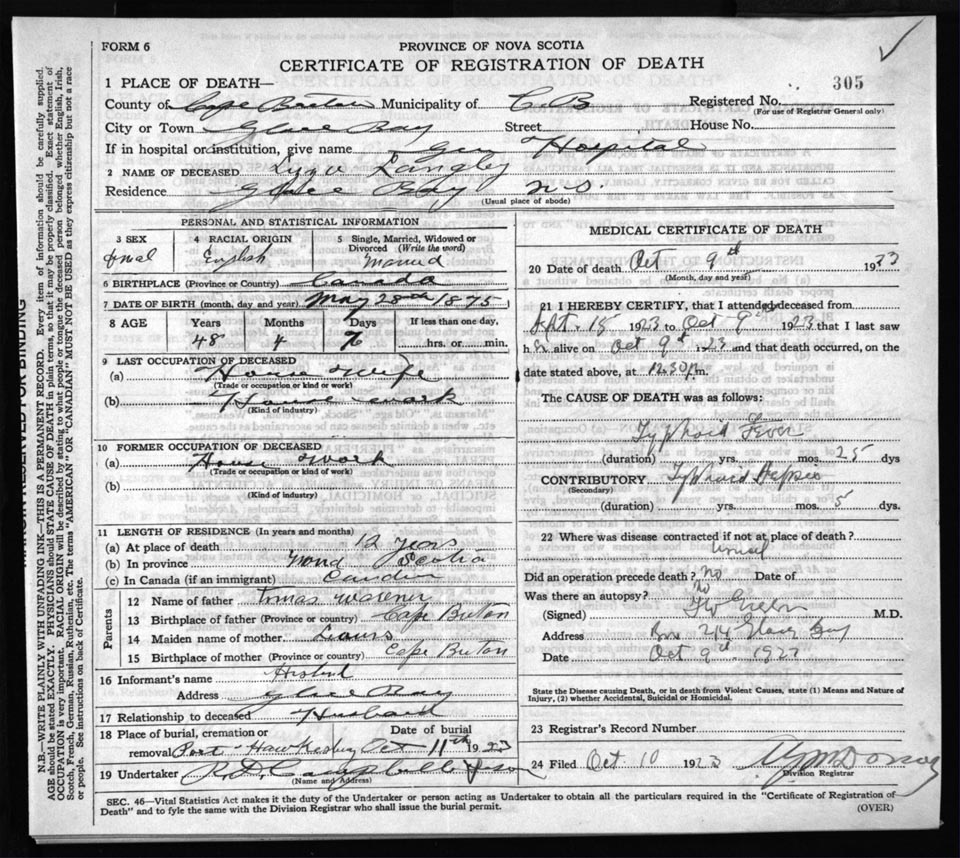 FORM 6
PROVINCE OF NOVA SCOTIA
CERTIFICATE OF REGISTRATION OF DEATH
305
1 PLACE OF DEATH—
County of Cape Breton Municipality of C B Registered No.
(For use of Registrar General only)
City or Town Glace Bay Street House No.
If in hospital or institution, give name Gen Hospital
2 NAME OF DECEASED Langley
Residence Glace Bay N.S.
(Usual place of abode)
PERSONAL AND STATISTICAL INFORMATION
3 SEX 4 RACIAL ORIGIN 5 Single, Married, Widowed or Divorced (Write the word)
English Married
6 BIRTHPLACE (Province or Country) Canada
7 DATE OF BIRTH (month, day and year) May 28th 1875
8 AGE Years Months Days If less than one day,
48 4 hrs. or min.
9 LAST OCCUPATION OF DECEASED
(a) House Wife
(Trade or occupation or kind or work)
(b) House work
(Kind of industry)
10 FORMER OCCUPATION OF DECEASED
(a) House Work
(Trade or occupation or kind or work)
(b)
(Kind of industry)
11 LENGTH OF RESIDENCE (In years and months)
(a) At place of death 12 years
(b) In province Scotia
(c) In Canada (if an immigrant)
Parents
12 Name of father
13 Birthplace of father (Province or country) Cape Breton
14 Maiden name of mother
15 Birthplace of mother (Province or country) Cape Breton
16 Informant's name
Address Glace Bay
17 Relationship to deceased Husband
18 Place of burial, cremation or Date of burial
removal Port Hawkesbury Oct 11th 1923
19 Undertaker R.D. Campbell & son
(Name and Address)
MEDICAL CERTIFICATE OF DEATH
20 Date of death Oct 9th 1923
(Month, day and year)
21 I HEREBY CERTIFY, that I attended deceased from
Sept. 15 1923 to Oct 9th 1923 that I last saw
her alive on Oct 9th 1923 and that death occurred, on the
date stated above, at 12.30 p.m.
The CAUSE OF DEATH was as follows:
Typhoid Fever
(duration) yrs. mos. 25 dys
CONTRIBUTORY Typhoid
(Secondary)
(duration) yrs. mos. 5 dys.
22 Where was disease contracted if not at place of death?
Did an operation precede death? no Date of
Was there an autopsy? no
(Signed) M.D.
Address Box Glace Bay
Date Oct 9th 1923
State the Disease causing Death, or in death from Violent Causes, state (1) Means and Nature of
Injury, (2) whether Accidental, Suicidal or Homicidal.
23 Registrar's Record Number
24 Filed Oct 10 1923
Division Registrar
SEC. 46—Vital Statistics Act makes it the duty of the Undertaker or person acting as Undertaker to obtain all the particulars required in the "Certificate of Registration of
Death" and to fyle the same with the Division Registrar who shall issue the burial permit.
(OVER)
MARGIN RESERVED FOR BINDING
N.B.—WRITE PLAINLY WITH UNFADING INK—THIS IS A PERMANENT RECORD. Every item of information should be carefully supplied.
AGE should be stated EXACTLY. PHYSICIANS should STATE CAUSE OF DEATH in plain terms, so that it may be properly classified. Exact statement of
OCCUPATION is very important. RACIAL ORIGIN will be described by stating to what people or tongue the deceased person belonged whether English, Irish,
Scotch, French, German, Russian, Ruthenian, etc. The terms "AMERICAN" or "CANADIAN" MUST NOT BE USED as they express citizenship but not a race
or people. See instructions on back of Certificate.